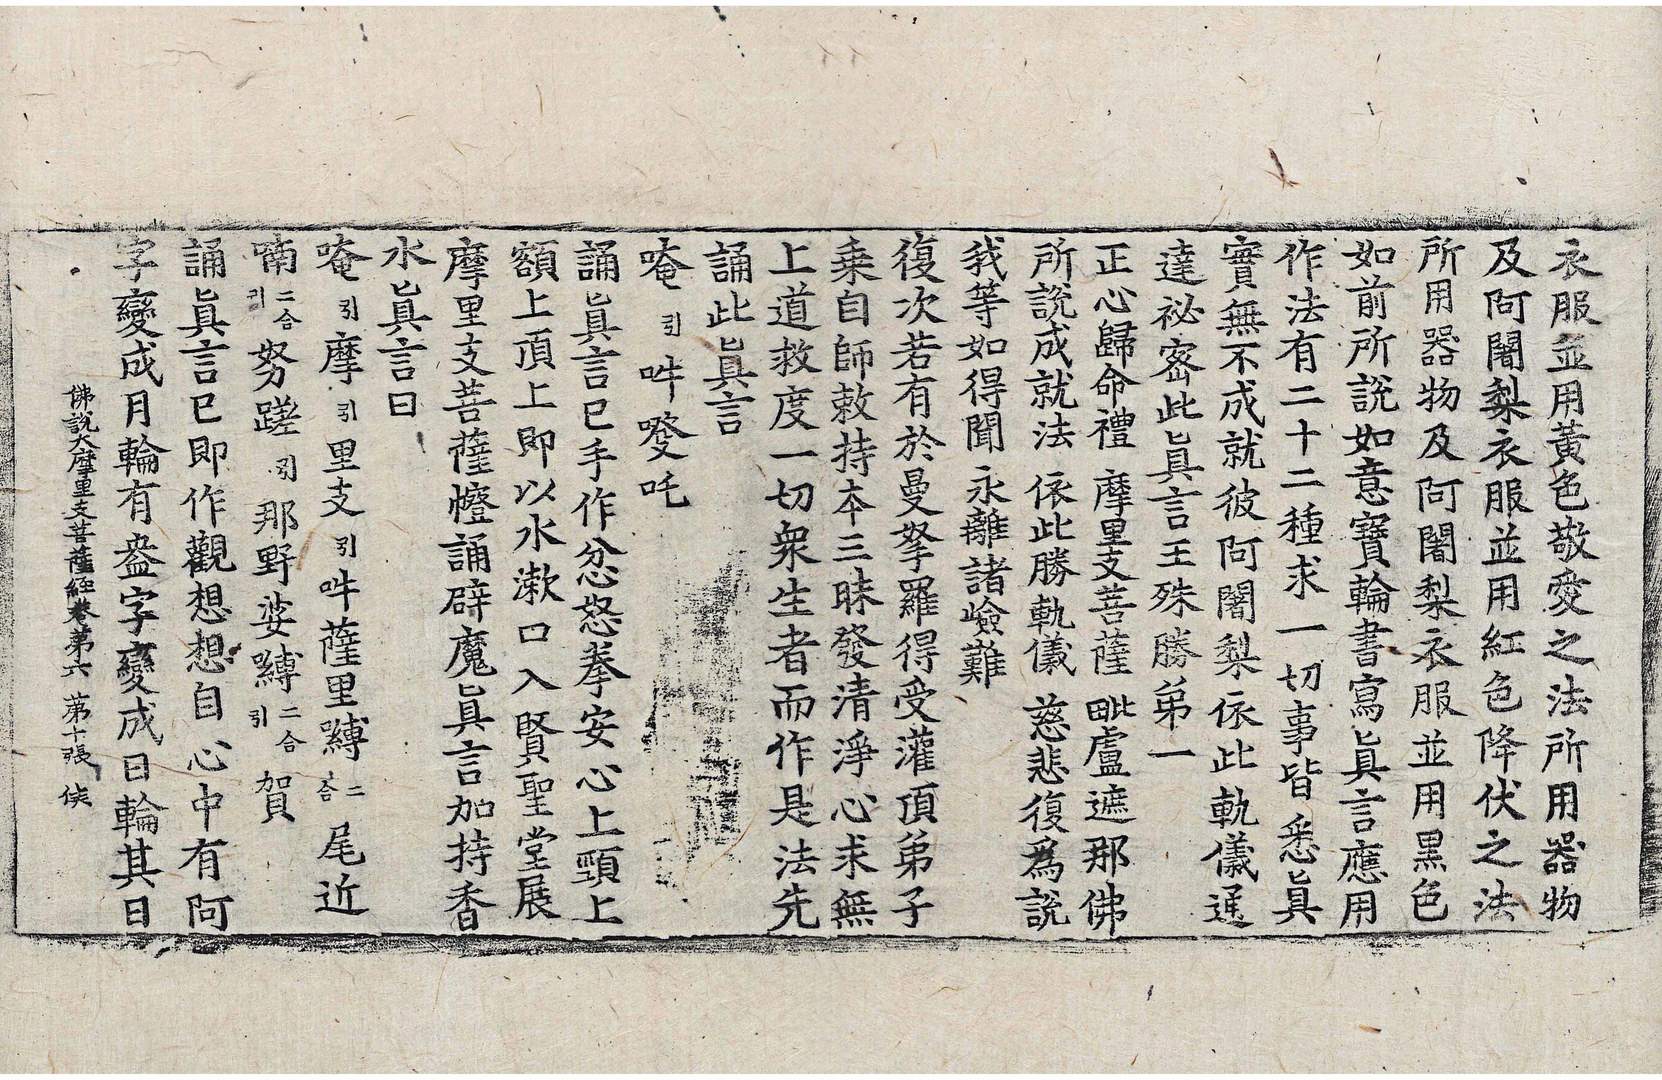 衣服並用黃色敬愛之法所用器物
及阿闍梨衣服並用紅色降伏之法
所用器物及阿闍梨衣服並用黑色
如前所說如意寶輪書寫眞言應用
作法有二十二種求一切事皆悉眞
實無不成就彼阿闍梨依此軌儀通
達祕密此眞言王殊勝弟一
正心歸命禮 摩里支菩薩 毗盧遮那佛
所說成就法 依此勝軌儀 慈悲復爲說
我等如得聞 永離諸嶮難
復次若有於曼拏羅得受灌頂弟子
乗自師敕持本三昧發清淨心求無
上道救度一切衆生者而作是法先
誦此眞言
唵引吽㗶吒
誦眞言已手作忿怒拳安心上頸上
額上頂上即以水漱口入賢聖堂展
摩里支菩薩㡧誦辟魔眞言加持香
水眞言曰
唵引摩引里支引吽薩里嚩二合尾近
喃二合引努蹉引那野娑嚩二合引賀
誦眞言已即作觀想想自心中有阿
字變成月輪有盎字變成日輪其日
佛說大摩里支菩薩經卷第六 苐十張 俠